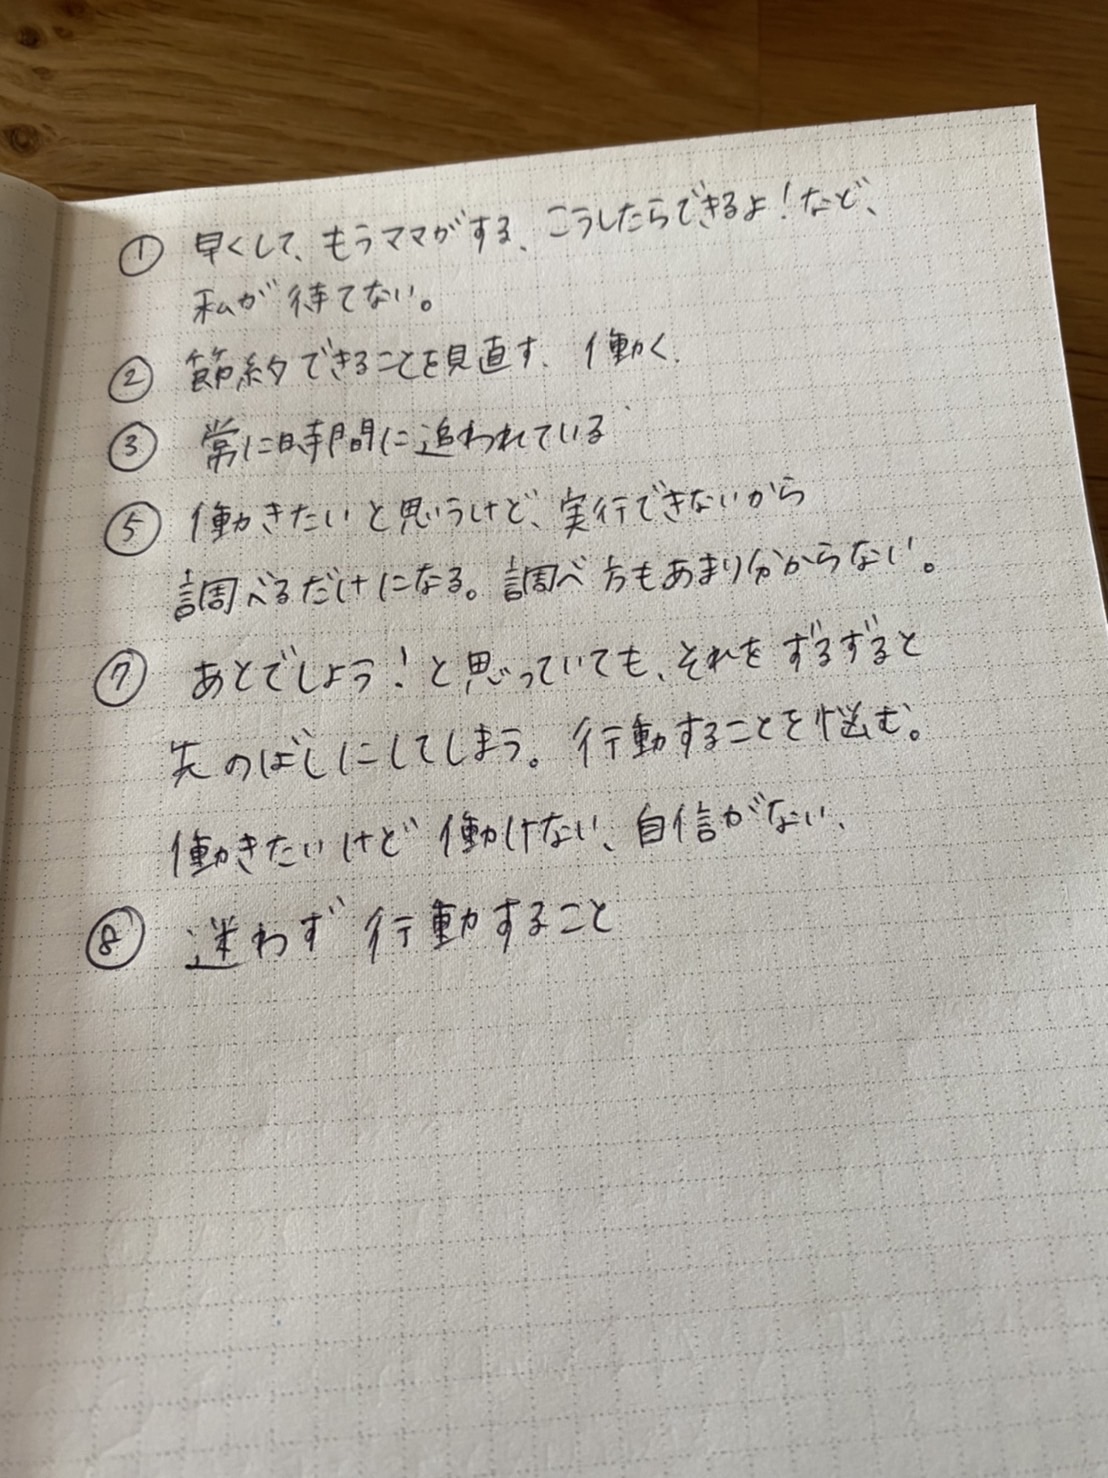 ① 早くして、もうママがする、こうしたらできるよ!など、
私が待てない。
② 節約できることを見直す、働く、
③ 常に時間に追われている
⑤ 働きたいと思うけど、実行できないから
調べるだけになる。調べ方もあまり分からない。
⑦ あとでしよう!と思っていても、それをずるずると
先のばしにしてしまう。行動することを悩む。
働きたいけど働けない、自信がない、
⑧ 迷わず行動すること